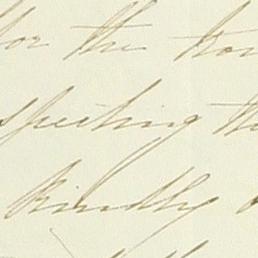 for the
specting the
Kindly